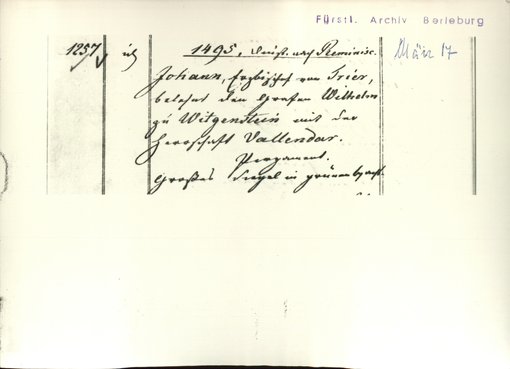 Fürstl. Archiv Berleburg
1257
1495, Dienst. nach Reminisc.
März 17
Johann, Erzbischof von Trier,
belehnt den Grafen Wilhelm
zu Witgenstein mit der
Herrschaft Vallendar.
Pergament.
Großes Siegel in grünem Wachs.